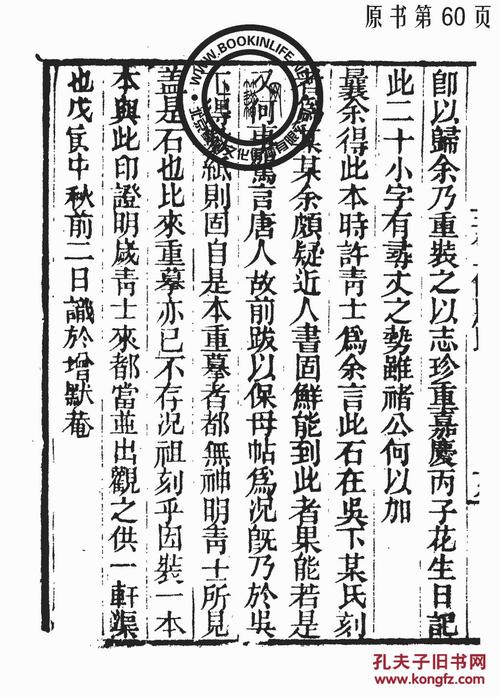 原书第60页
WWW.BOOKINLIFE.NET
即以歸余乃重裝之以志珍重嘉慶丙子花生日記
此二十小字有尋丈之勢雖禇公何以加
曩余得此本時許靑士爲余言此石在吳下某氏刻
某余頗疑近人書固鮮能到此者果能若是
又何言唐人故前跋以保母帖爲況旣乃於吳
下得紙則固自是本重摹者都無神明靑士所見
蓋是石也比來重摹亦已不存況祖刻乎因裝一本
本與此印證明歲靑士來都當並出觀之供一軒渠
也戊寅中秋前二日識於增默菴
孔夫子旧书网
www.kongfz.com